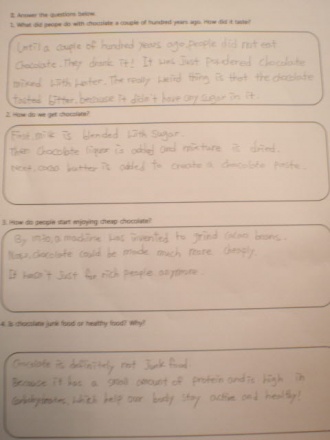 II. Answer the questions below.
1. What did people do with chocolate a couple of hundred years ago. How did it taste?
Until a couple of hundred years ago, people did not eat
chocolate. They drank it! It was just powdered chocolate
mixed with water. The really weird thing is that the chocolate
tasted bitter, because it didn't have any sugar in it.
2. How do we get chocolate?
First, milk is blended with sugar.
Then chocolate liquor is added and mixture is dried.
Next, cacao butter is added to create a chocolate paste.
3. How do people start enjoying cheap chocolate?
By, a machine was invented to grind cacao beans.
Now, chocolate could be made much more cheaply.
It wasn't just for rich people anymore.
4. Is chocolate junk food or healthy food? Why?
Chocolate is definitely not junk food.
Because it has a small amount of protein and is high in
carbohydrates, which help our body stay active and healthy!